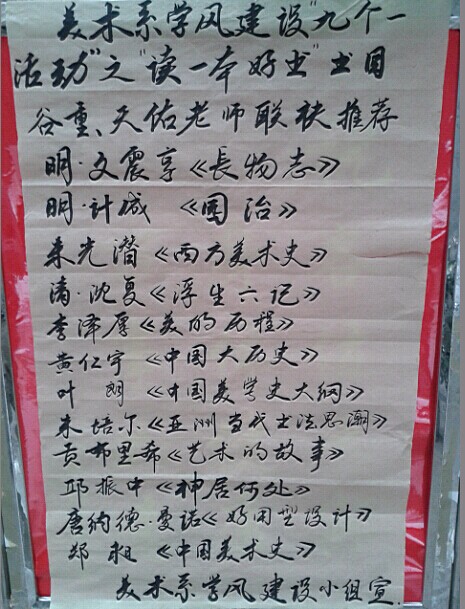 美术系学风建设"九个一
活动"之"读一本好书"书目
谷重、天佑老师联袂推荐
明·文震享《長物志》
明·计成 《园治》
朱光潜《西方美术史》
清·沈复《浮生六记》
李泽厚《美的历程》
黄仁宇 《中国大历史》
叶 朗 《中国美学史大纲》
朱培尔《亚洲当代书法思潮》
贡布里希《艺术的故事》
邱振中《神居何处》
唐纳德·曼诺《好用型设计》
郑 《中国美术史》
美术系学风建设小组宣.